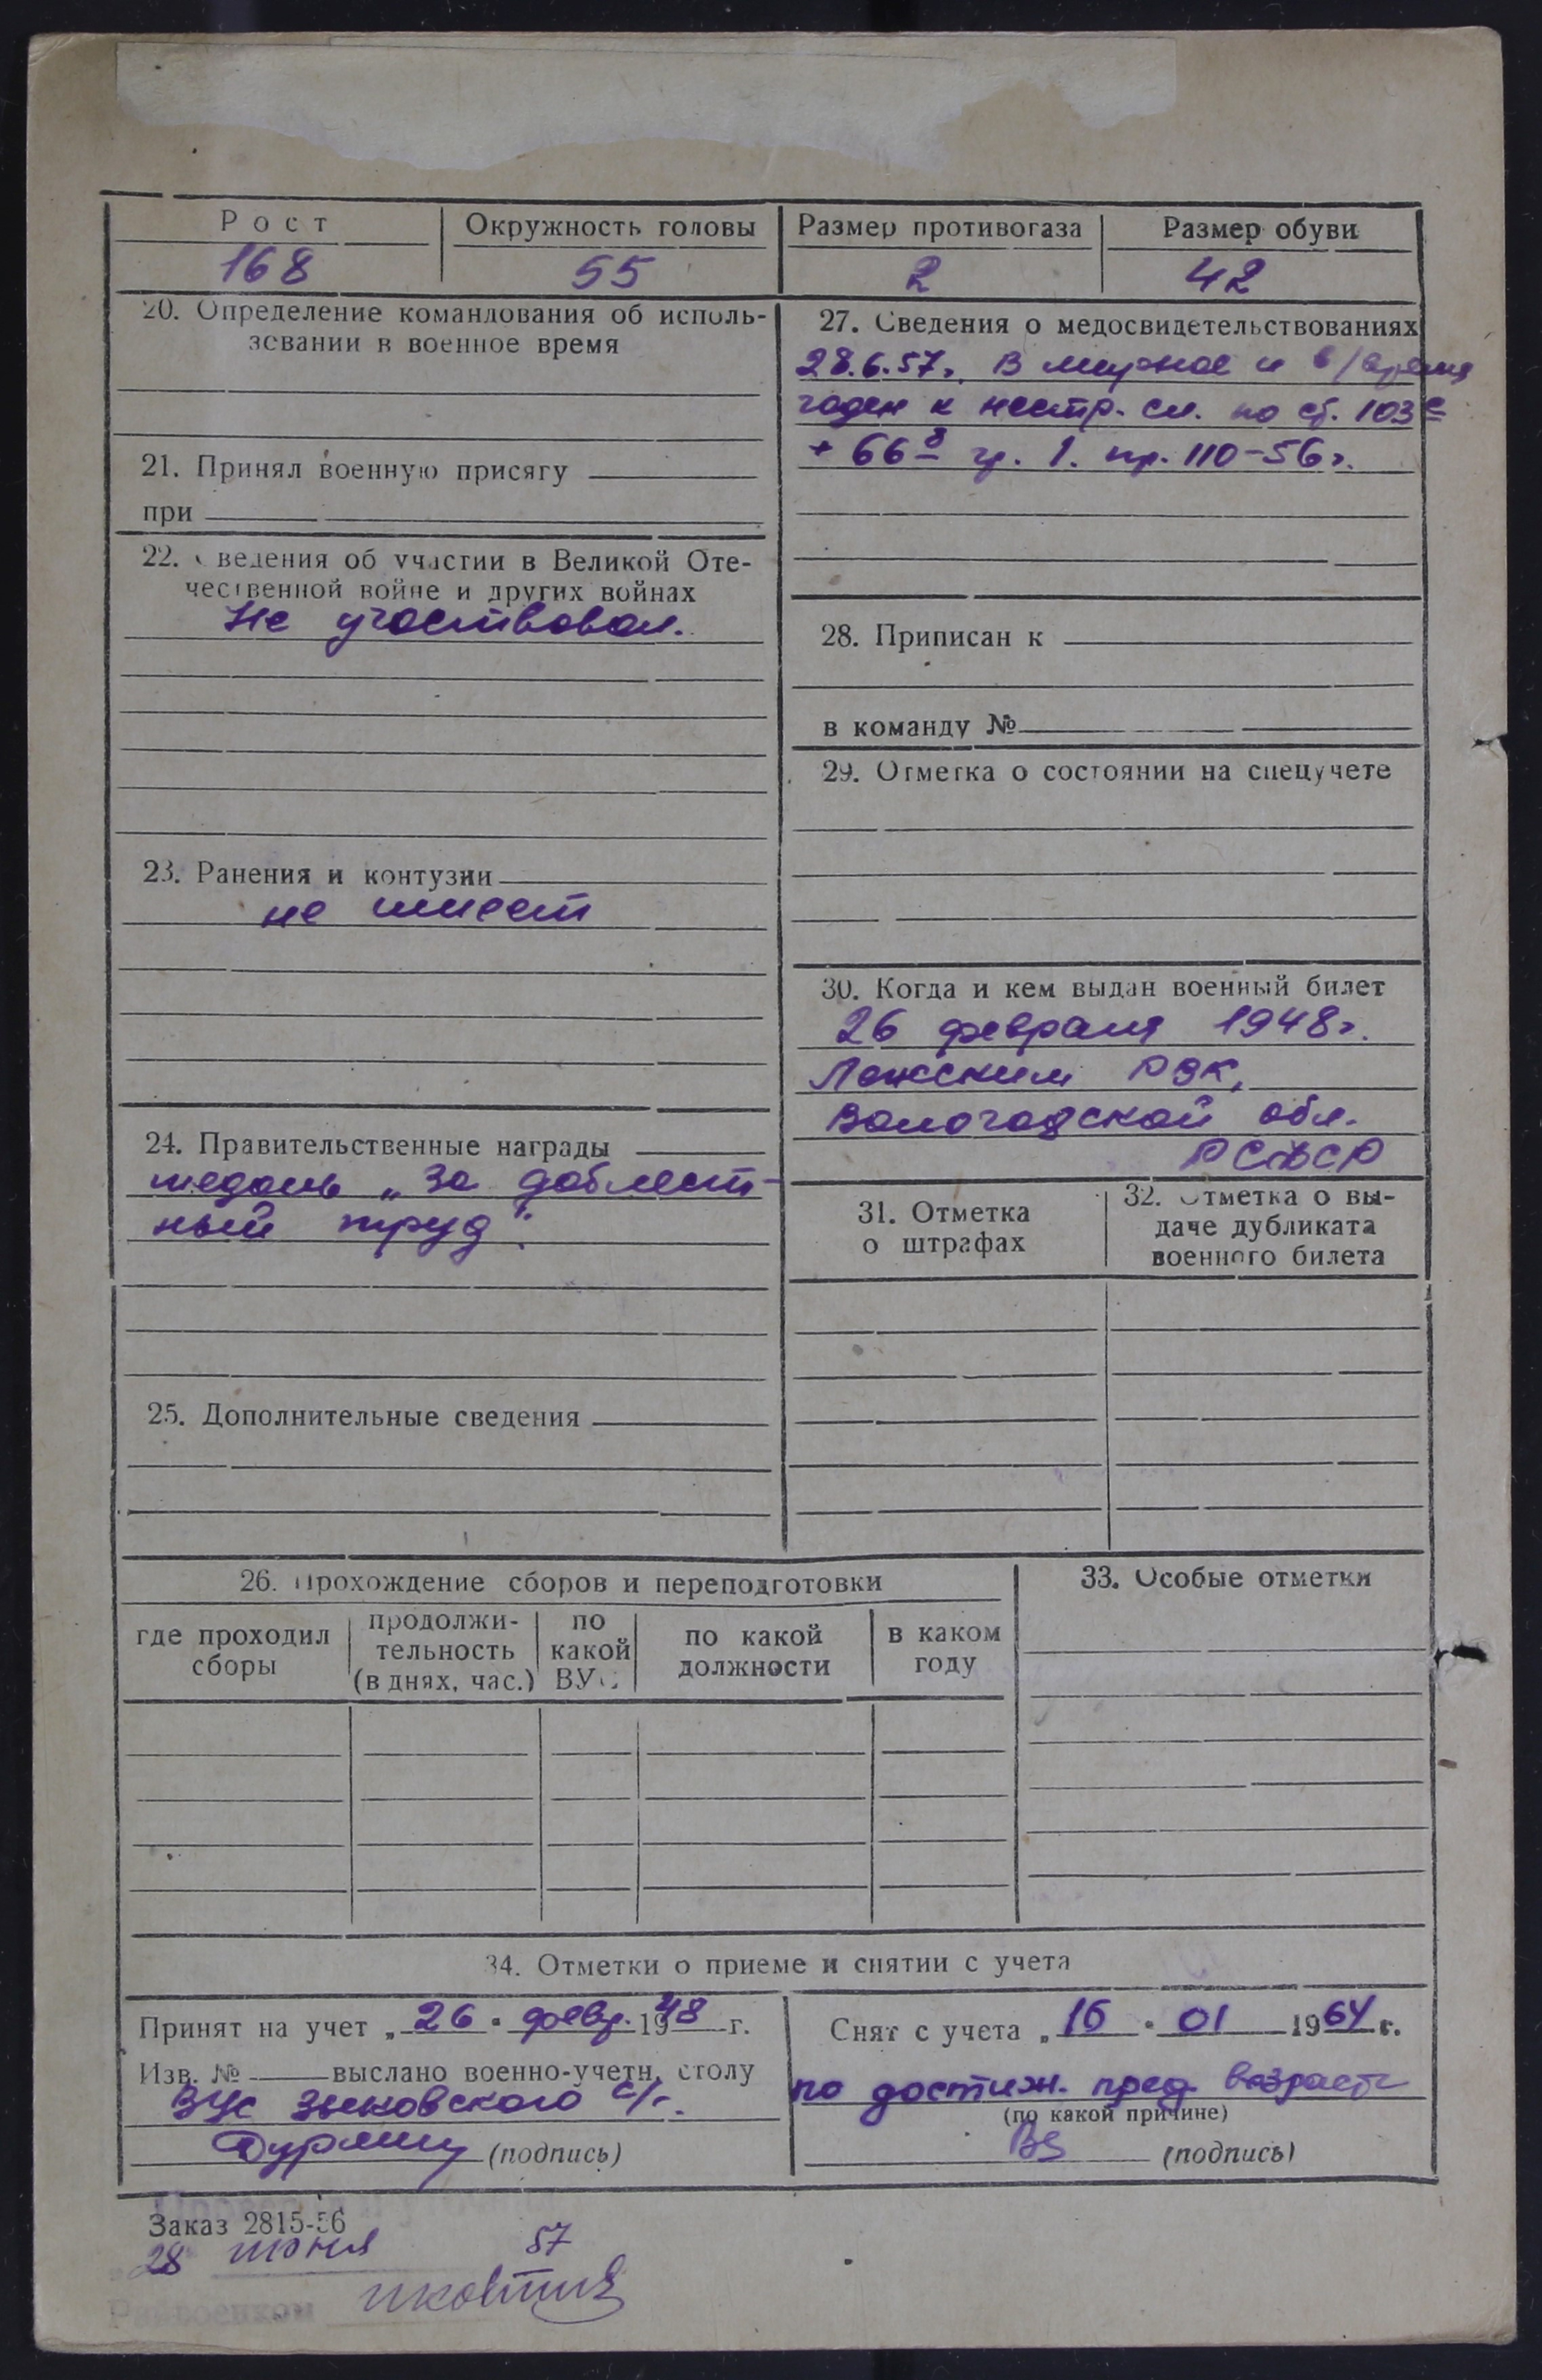 Рост
Окружность головы
Размер противогаза
Размер обуви
168
55
2
42
20. Определение командования об исполь-
зовании в военное время
21. Принял военную присягу
при
22. Сведения об участии в Великой Оте-
чественной войне и других войнах
Не участвовал.
23. Ранения и контузии
не имеет
24. Правительственные награды
медаль „За доблест-
ный труд".
25. Дополнительные сведения
27. Сведения о медосвидетельствованиях
28.6.57г. В мирное и в/время
годен к нестр. сл. по ст. 103
+ 66 гр. 1. пр. 110-56г.
28. Приписан к
в команду №
29. Отметка о состоянии на спецучете
30. Когда и кем выдан военный билет
26 февраля 1948г.
РВК,
Вологодской обл.
РСФСР
31. Отметка
о штрафах
32. Отметка о вы-
даче дубликата
военного билета
26. Прохождение сборов и переподготовки
где проходил
сборы
продолжи-
тельность
(в днях, час.)
по
какой
ВУС
по какой
должности
в каком
году
33. Особые отметки
34. Отметки о приеме и снятии с учета
Принят на учет „ 26 " февр. 1948 г.
Изв. № выслано военно-учетн. столу
ВУС Зыковского с/с.
(подпись)
Снят с учета „ 16 " 01 1964 г.
по достиж. пред. возраста
(по какой причине)
(подпись)
Заказ 2815-56
28 июня 57
Райвоенком